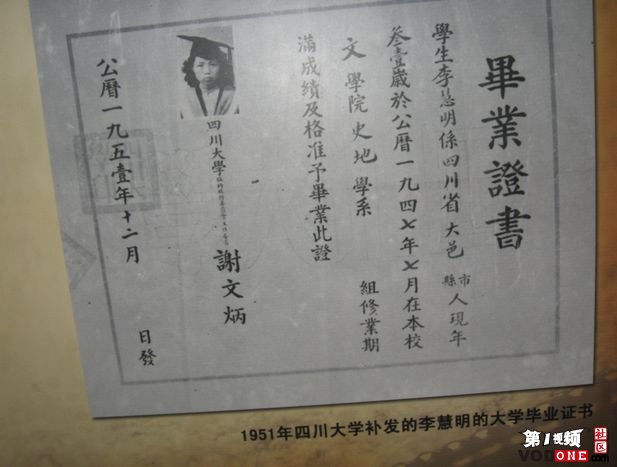 畢業證書
學生李慧明係四川省大邑縣市人現年
叁壹嵗於公曆一九四七年七月在本校
文學院史地學系組修業期
滿成績及格准予畢業此證
四川大學
謝文炳
公曆一九五壹年十二月日發
1951年四川大学补发的李慧明的大学毕业证书
第1视频
社区
VODONE.com